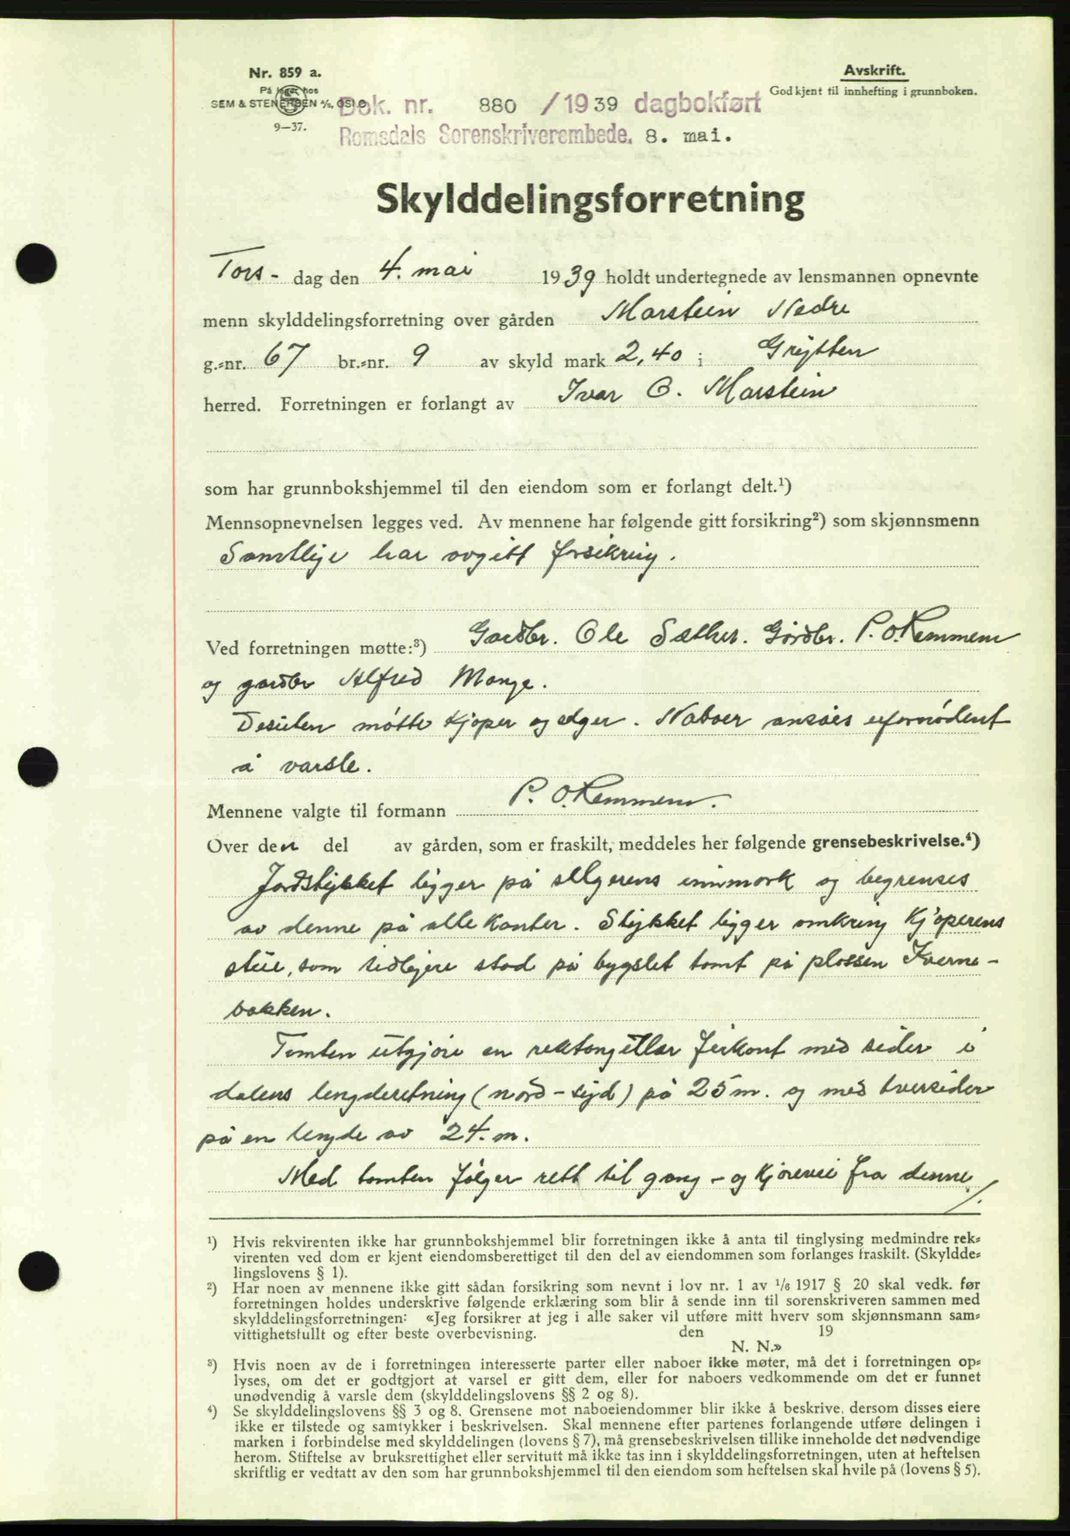 Nr. 859 a.
På lager hos
SEM & STENERSEN A/S, OSLO
9—37.
Avskrift.
Godkjent til innhefting i grunnboken.
Dok. nr. 880 /1939 dagbokført
Romsdals Sorenskriverembede. 8. mai.
Skylddelingsforretning
Tors- dag den 4. mai 1939 holdt undertegnede av lensmannen opnevnte
menn skylddelingsforretning over gården Marstein Nedre
g.-nr. 67 br.-nr. 9 av skyld mark 2,40 i Grytten
herred. Forretningen er forlangt av Ivar O. Marstein
som har grunnbokshjemmel til den eiendom som er forlangt delt.¹)
Mennsopnevnelsen legges ved. Av mennene har følgende gitt forsikring²) som skjønnsmenn
Samtlige har avgitt forsikring.
Ved forretningen møtte:³) Gardbr. Ole Sæther. Gårdbr. P. O. Remmem
og gardbr Alfred Monge.
Desuten møtte kjøper og selger. Naboer ansåes ufornødent
å varsle.
Mennene valgte til formann P. O. Remmem.
Over den del av gården, som er fraskilt, meddeles her følgende grensebeskrivelse.⁴)
Jordstykket ligger på selgerens innmark og begrenses
av denne på alle kanter. Stykket ligger omkring kjøperens
stue, som tidligere stod på bygslet tomt på plassen Kverne-
bakken.
Tomten utgjøre en rektangullær firkant med sider i
dalens lengderetning (nord - syd) på 25 m. og med tversider
på en lengde av 24. m.
Med tomten følger rett til gang - og kjørevei fra denne
/.
¹) Hvis rekvirenten ikke har grunnbokshjemmel blir forretningen ikke å anta til tinglysing medmindre rek-
virenten ved dom er kjent eiendomsberettiget til den del av eiendommen som forlanges fraskilt. (Skyldde-
lingslovens § 1).
²) Har noen av mennene ikke gitt sådan forsikring som nevnt i lov nr. 1 av ¹/₆ 1917 § 20 skal vedk. før
forretningen holdes underskrive følgende erklæring som blir å sende inn til sorenskriveren sammen med
skylddelingsforretningen: «Jeg forsikrer at jeg i alle saker vil utføre mitt hverv som skjønnsmann sam-
vittighetsfullt og efter beste overbevisning. den 19
N. N.»
³) Hvis noen av de i forretningen interesserte parter eller naboer ikke møter, må det i forretningen op-
lyses, om det er godtgjort at varsel er gitt dem, eller for naboers vedkommende om det er funnet
unødvendig å varsle dem (skylddelingslovens §§ 2 og 8).
⁴) Se skylddelingslovens §§ 3 og 8. Grensene mot naboeiendommer blir ikke å beskrive, dersom disses eiere
ikke er tilstede og samtykker i beskrivelsen. Skal mennene efter partenes forlangende utføre delingen i
marken i forbindelse med skylddelingen (lovens § 7), må grensebeskrivelsen tillike inneholde det nødvendige
herom. Stiftelse av bruksrettighet eller servitutt må ikke tas inn i skylddelingsforretningen, uten at heftelsen
skriftlig er vedtatt av den som har grunnbokshjemmel til den eiendom som heftelsen skal hvile på (lovens § 5).